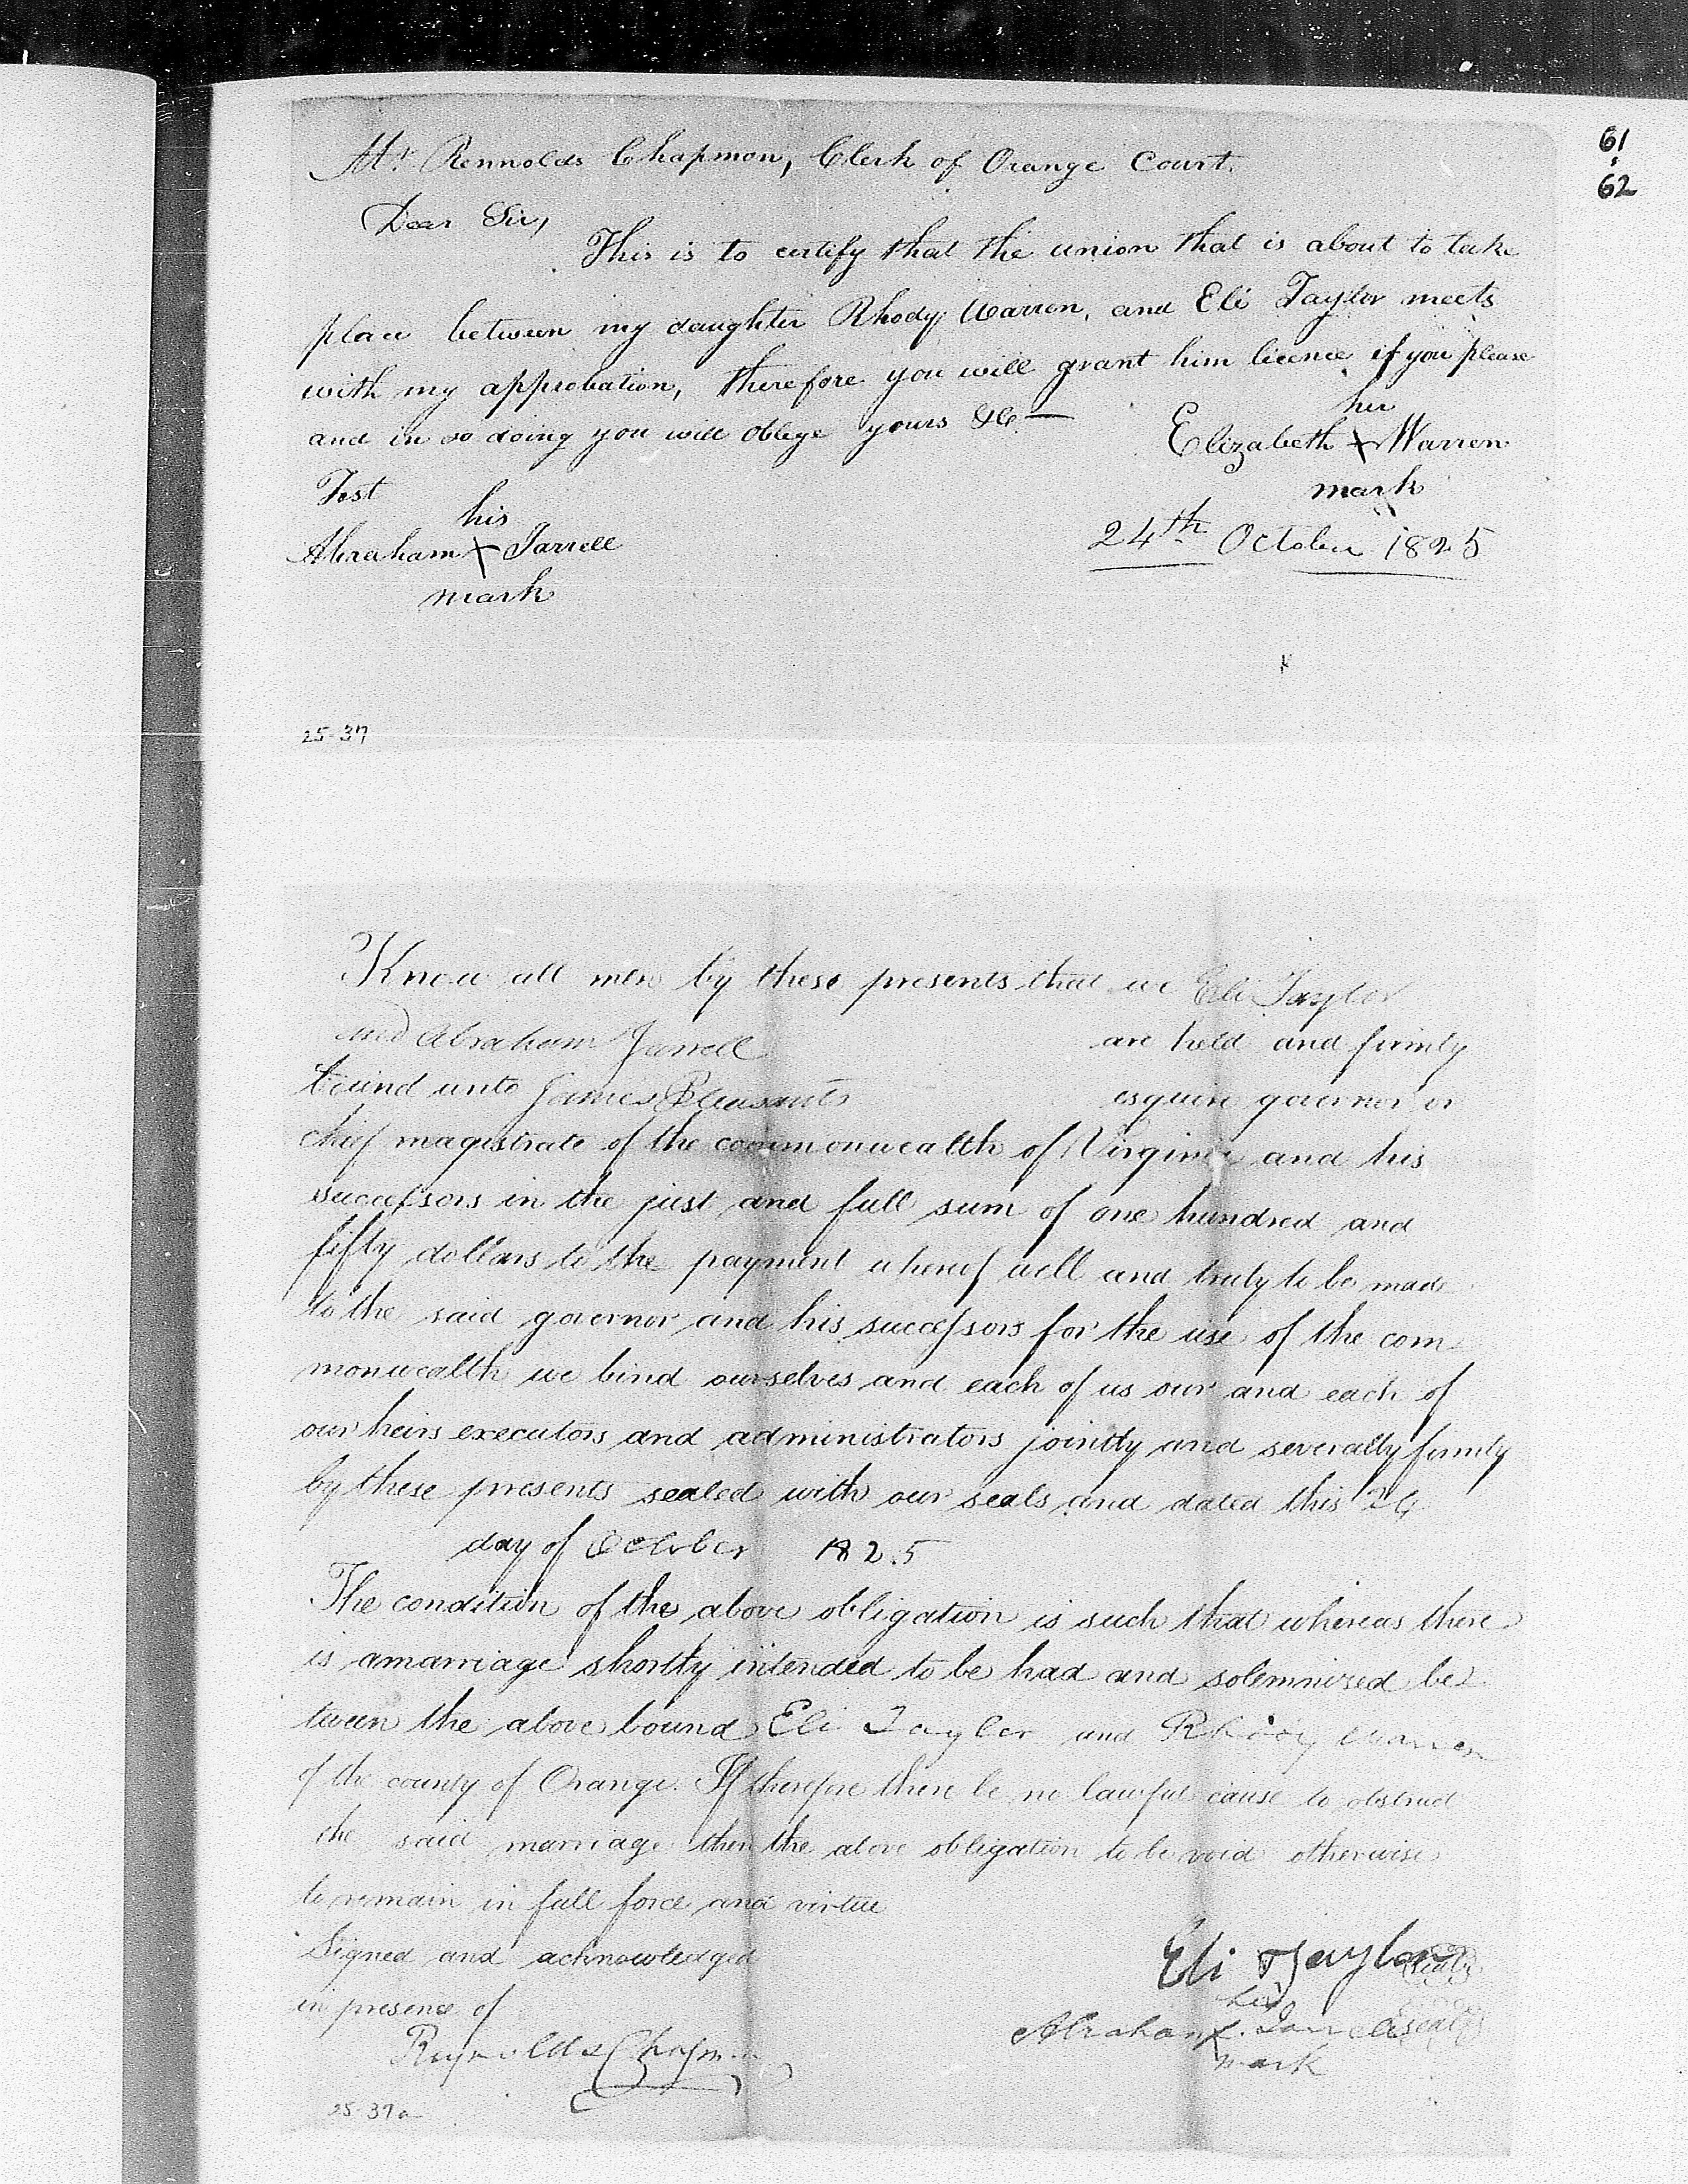 61
62
Mr. Rennolds Chapmon, Clerk of Orange Court.
Dear Sir,
This is to certify that the union that is about to take
place between my daughter Rhody Warren, and Eli Taylor meets
with my approbation, therefore you will grant him licence if you please
and in so doing you will oblege yours &c —
her
Elizabeth X Warren
mark
Test
his
Abraham X Jarrell
mark
24th October 1825
25-37
Know all men by these presents that we Eli Taylor
and Abraham Jarrell are held and firmly
bound unto James Pleasants esquire governor or
chief magistrate of the commonwealth of Virginia and his
successors in the just and full sum of one hundred and
fifty dollars to the payment whereof well and truly to be made
to the said governor and his successors for the use of the com
monwealth we bind ourselves and each of us our and each of
our heirs executors and administrators jointly and severally firmly
by these presents sealed with our seals and dated this
day of October 1825
The condition of the above obligation is such that whereas there
is a marriage shortly intended to be had and solemnized be
tween the above bound Eli Taylor and Rhody Warren
of the county of Orange. If therefore there be no lawful cause to obstruct
the said marriage then the above obligation to be void otherwise
to remain in full force and virtue
Signed and acknowledged
in presence of
Reynolds Chapman
Eli Taylor seal
his
Abraham X Jarrell seal
mark
25-37a